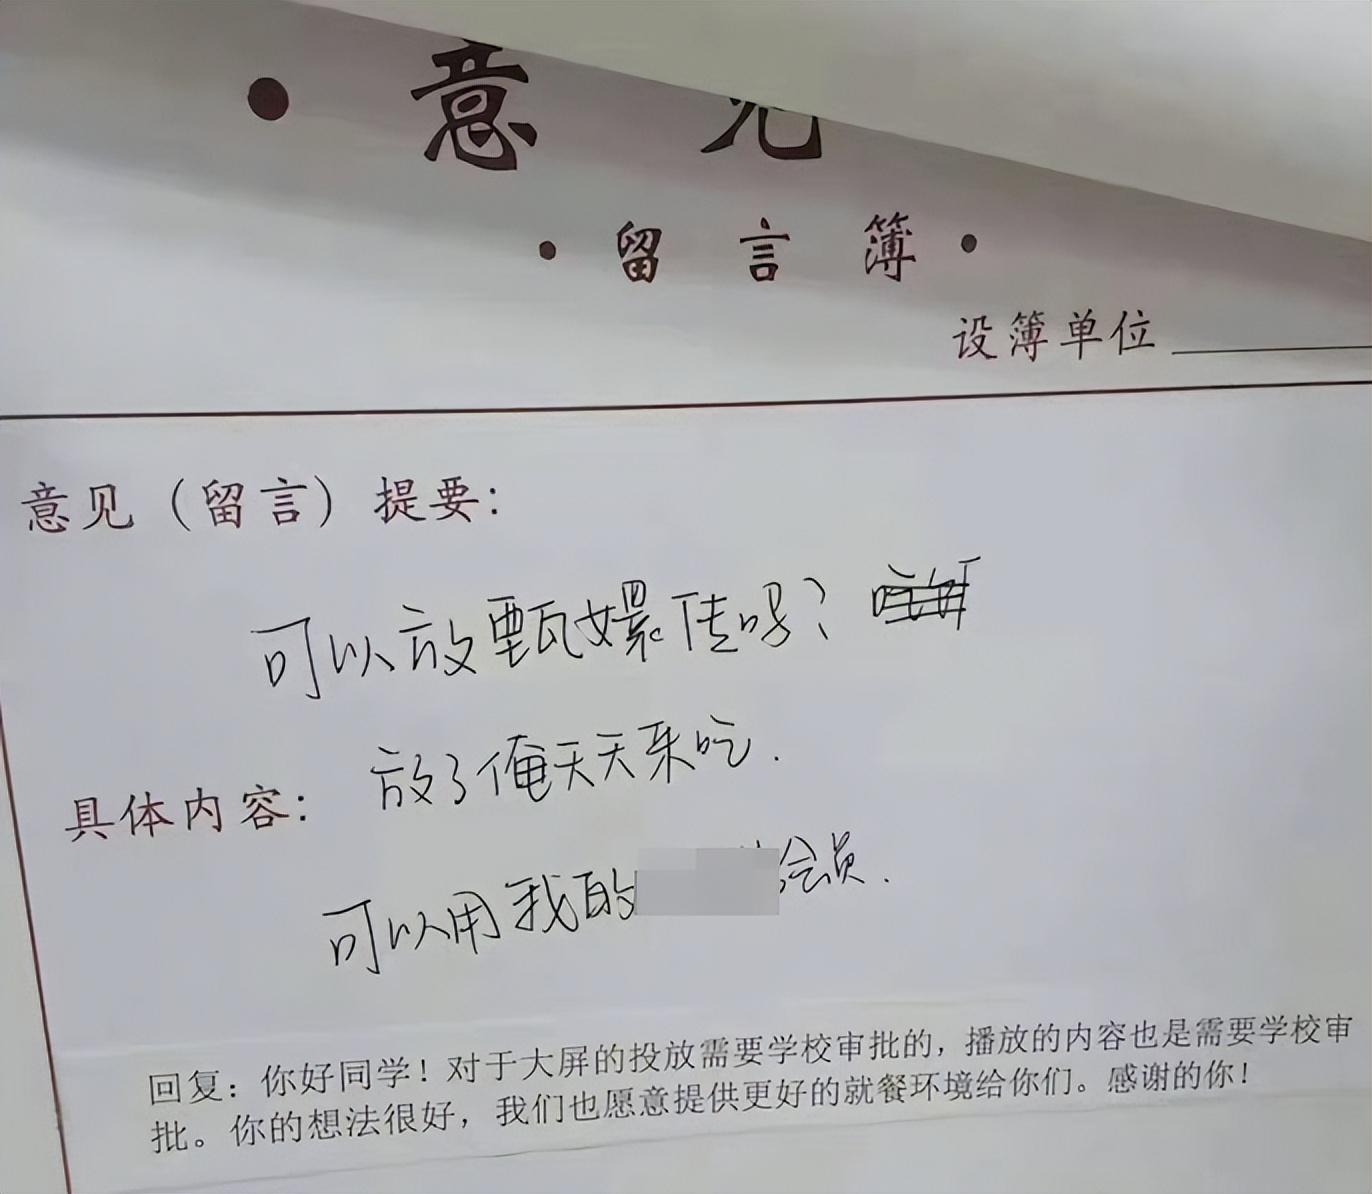 ·意见
·留言簿·
设簿单位
意见（留言）提要：
可以放甄嬛传吗？
放了俺天天来吃.
具体内容：
可以用我的会员.
回复：你好同学！对于大屏的投放需要学校审批的，播放的内容也是需要学校审
批。你的想法很好，我们也愿意提供更好的就餐环境给你们。感谢的你！